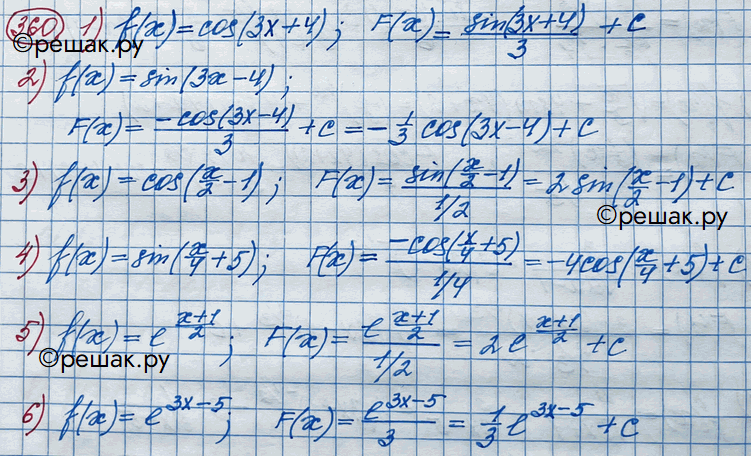 360. 1) f(x) = cos(3x+4); F(x) = sin(3x+4)/3 + C
©решак.ру
2) f(x) = sin(3x-4);
F(x) = -cos(3x-4)/3 + C = -1/3 cos(3x-4) + C
3) f(x) = cos(x/2 -1); F(x) = sin(x/2 -1)/1/2 = 2 sin(x/2 -1) + C
©решак.ру
4) f(x) = sin(x/4 +5); F(x) = -cos(x/4 +5)/1/4 = -4cos(x/4 +5) + C
5) f(x) = e^(x+1)/2; F(x) = e^(x+1)/2/1/2 = 2e^(x+1)/2 + C
©решак.ру
6) f(x) = e^3x-5; F(x) = e^3x-5/3 = 1/3 e^3x-5 + C